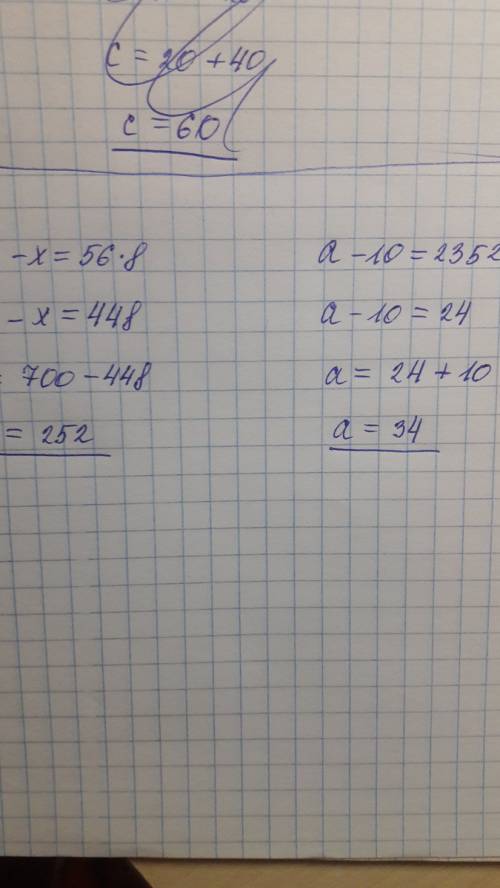 c = 20 + 40
c = 60
- x = 56 · 8
- x = 448
= 700 - 448
= 252
a - 10 = 2352
a - 10 = 24
a = 24 + 10
a = 34